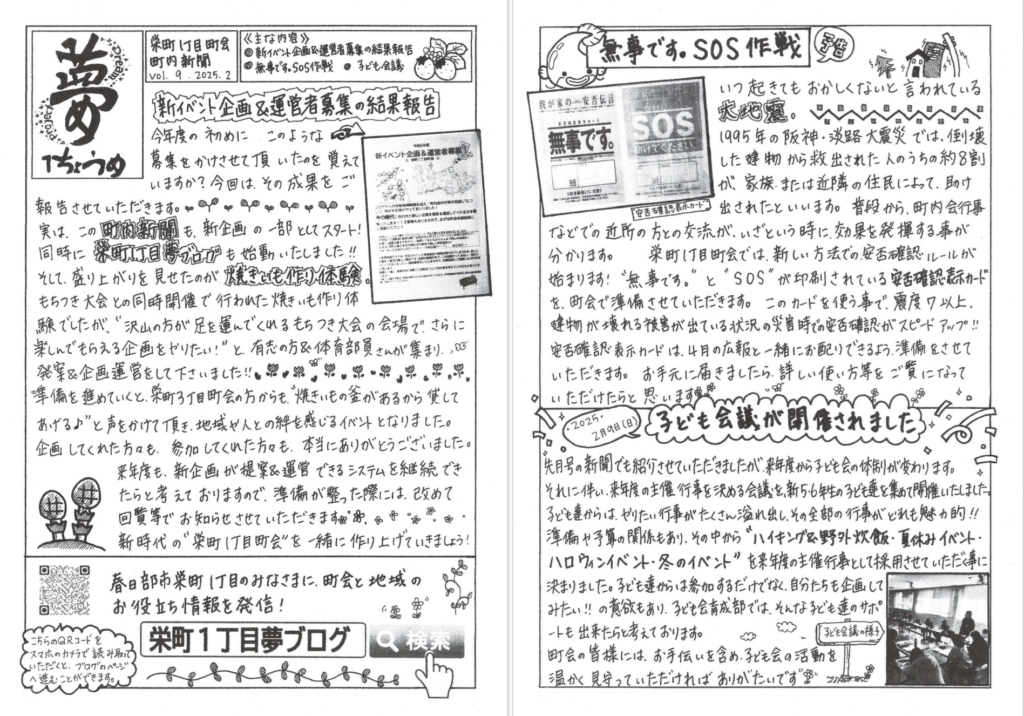 夢
Dream
1ちょうめ
栄町1丁目町会
町内新聞
vol.9 2025.2
《主な内容》
新イベント企画&運営者募集の結果報告
無事です。SOS作戦 子ども会議
新イベント企画&運営者募集の結果報告
今年度の初めに このような
募集をかけさせて頂いたのを覚えて
いますか?今回は、その成果をご
報告させていただきます。
実は、この町内新聞も、新企画の一部としてスタート!
同時に 栄町1丁目夢ブログも始動いたしました!!
そして、盛り上がりを見せたのが 焼きいも作り体験。
もちつき大会との同時開催で行われた焼きいも作り体
験でしたが、“沢山の方が足を運んでくれるもちつき大会の会場でさらに
楽しんでもらえる企画をやりたい!”と、有志の方&体育部員さんが集まり、
発案&企画運営をして下さいました!!
準備を進めていくと、栄町3丁目町会の方からも“焼きいも釜があるから貸して
あげる♪”と声をかけて頂き、地域や人との絆を感じるイベントとなりました。
企画してくれた方々も、参加してくれた方々も、本当にありがとうございました。
来年度も、新企画が提案&運営できるシステムを継続でき
たらと考えておりますので、準備が整った際には、改めて
回覧等でお知らせさせていただきます。
新時代の“栄町1丁目町会”を一緒に作り上げていきましょう!
新イベント企画&運営者募集
春日部市栄町1丁目のみなさまに、町会と地域の
お役立ち情報を発信!
栄町1丁目夢ブログ 検索
こちらのQRコードを
スマホのカメラで読み取って
いただくと、ブログのページ
へ進むことができます。
無事です。SOS作戦
予告
我が家の 安否伝言
無事です。
SOS
助けてください
安否確認表示カード
いつ起きてもおかしくないと言われている
大地震。
1995年の阪神・淡路大震災では、倒壊
した建物から救出された人のうちの約8割
が、家族、または近隣の住民によって、助け
出されたといいます。普段から、町内会行事
などでの近所の方との交流が、いざという時に、効果を発揮する事が
分かります。 栄町1丁目町会では、新しい方法での安否確認ルールが
始まります!“無事です。”と“SOS”が印刷されている安否確認表示カード
を、町会で準備させていただきます。このカードを使う事で、震度7以上、
建物が壊れる被害が出ている状況の災害時での安否確認がスピードアップ!!
安否確認表示カードは、4月の広報と一緒にお配りできるよう、準備をさせて
いただきます。お手元に届きましたら、詳しい使い方等をご覧になって
いただけたらと思います。
2025.
2月9日(日)
子ども会議が開催されました
先月号の新聞でも紹介させていただきましたが、来年度から子ども会の体制が変わります。
それに伴い、来年度の主催行事を決める会議を、新5・6年生の子ども達を集めて開催いたしました。
子ども達からは、やりたい行事がたくさん溢れ出し、その全部の行事がどれも魅力的!!
準備や予算の関係もあり、その中から“ハイキング&野外炊飯・夏休みイベント・
ハロウィンイベント・冬のイベント”を来年度の主催行事として採用させていただく事に
決まりました。子ども達からは参加するだけでなく、自分たちも企画して
みたい!!の意欲もあり、子ども会育成部では、そんな子ども達のサポ
ートも出来たらと考えております。
子ども会議の様子
町会の皆様には、お手伝いを含め、子ども会の活動を
温かく見守っていただければありがたいです